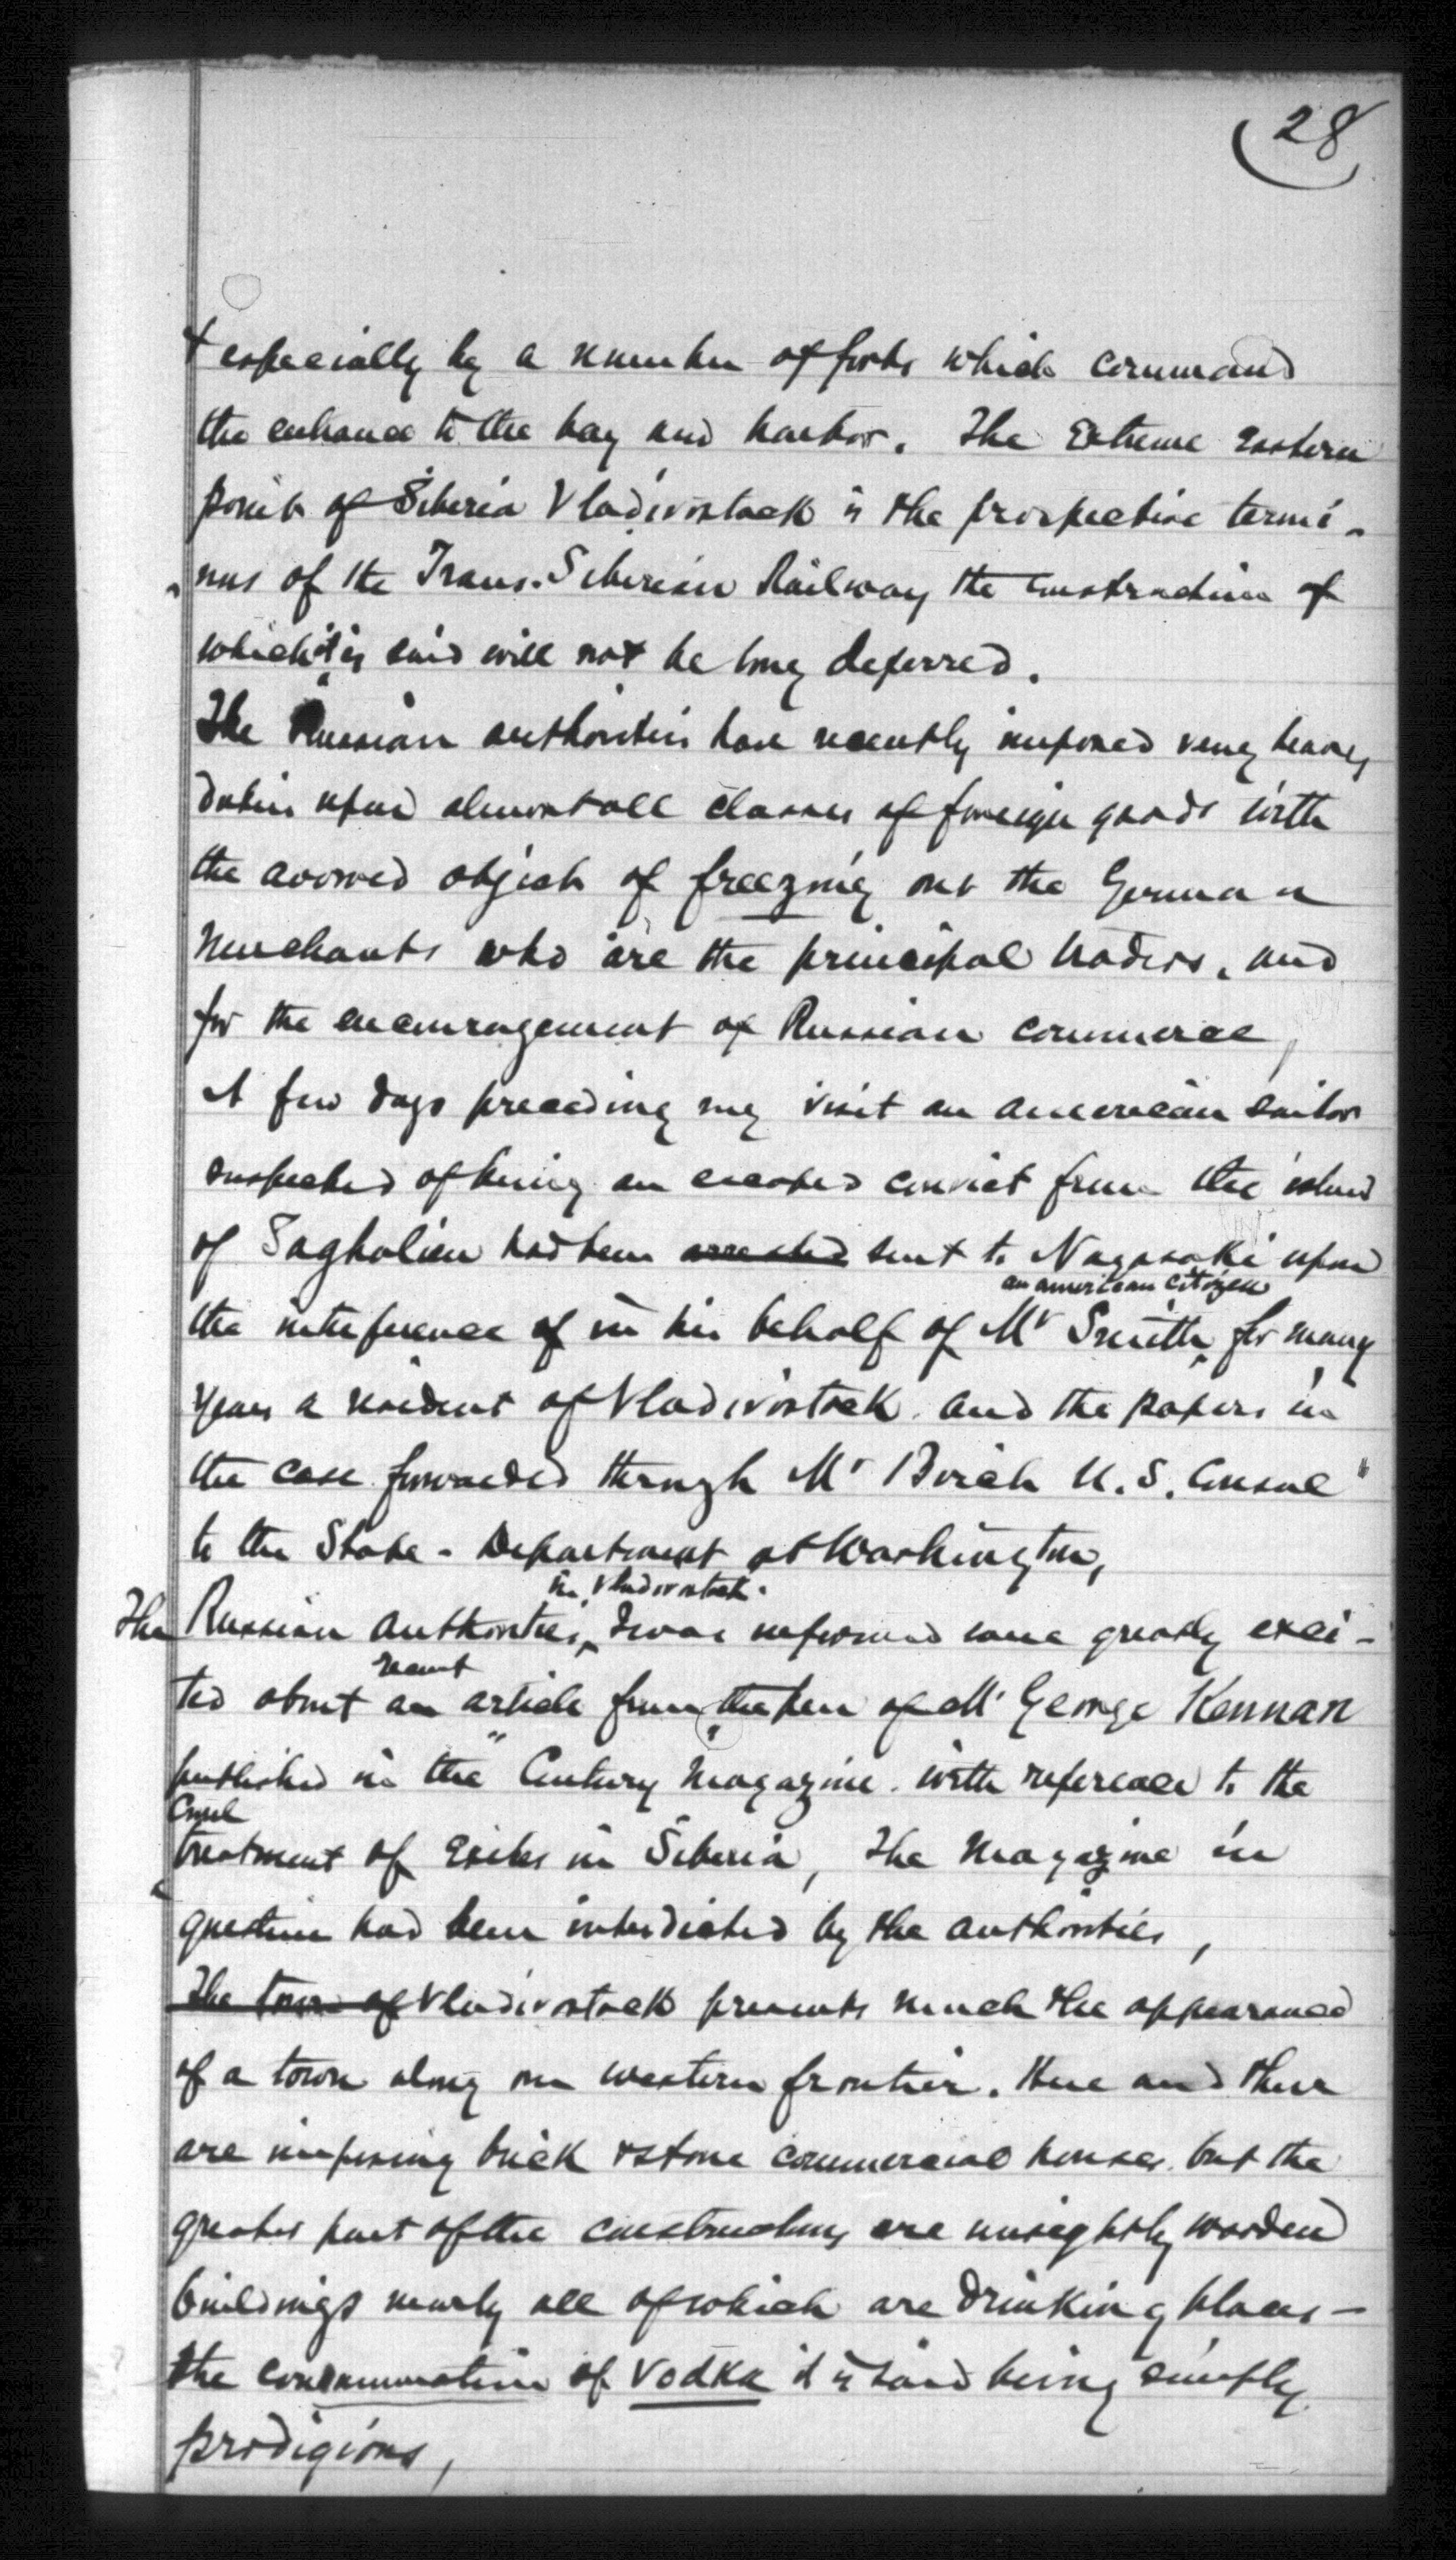 28
& especially by a number of forts which command
the entrance to the bay and harbor. The Extreme Eastern
point of Siberia Vladivostock is the prospective termi-
nus of the Trans-Siberian Railway the construction of
which it is said will not be long deferred.
The Russian authorities have recently imposed very heavy
duties upon almost all classes of foreign goods with
the avowed object of freezing out the German
merchants who are the principal traders, and
for the encouragement of Russian commerce,
A few days preceding my visit an American sailor
suspected of being an escaped convict from the island
of Saghalien had been arrested sent to Nagasaki upon
an american citizen
the interference of in his behalf of Mr Smith for many
years a resident of Vladivostock and the papers in
the case forwarded through Mr Birch U.S. Consul
to the State-Department at Washington,
in Vladivostock
The Russian authorities, I was informed were greatly exci-
recent
ted about an article from the pen of Mr George Kennan
published in the "Century Magazine with reference to the
Cruel
treatment of Exiles in Siberia, The Magazine in
question had been interdicted by the authorities,
The town of Vladivostock presents much the appearance
of a town along our western frontier. Here and there
are imposing brick & stone commercial houses but the
greater part of the constructions are unsightly wooden
buildings nearly all of which are drinking places-
the consummation of Vodka it is said being simply
prodigious,